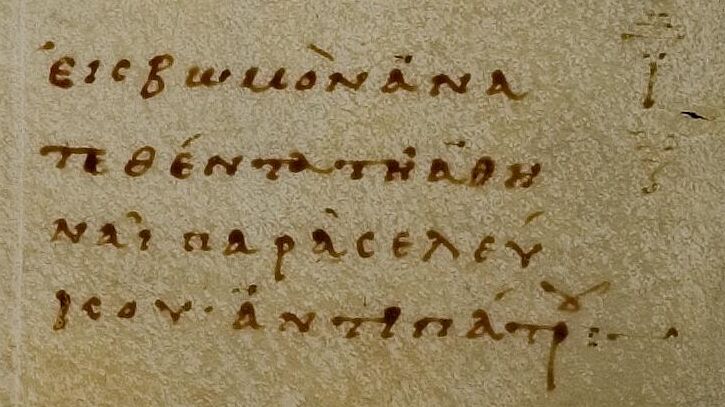 εἰς βωμὸν ἀνα
τεθέντα τῆ ἀθη
νᾶι παρὰ σελεύ
κου· ἀντιπάτρου :—